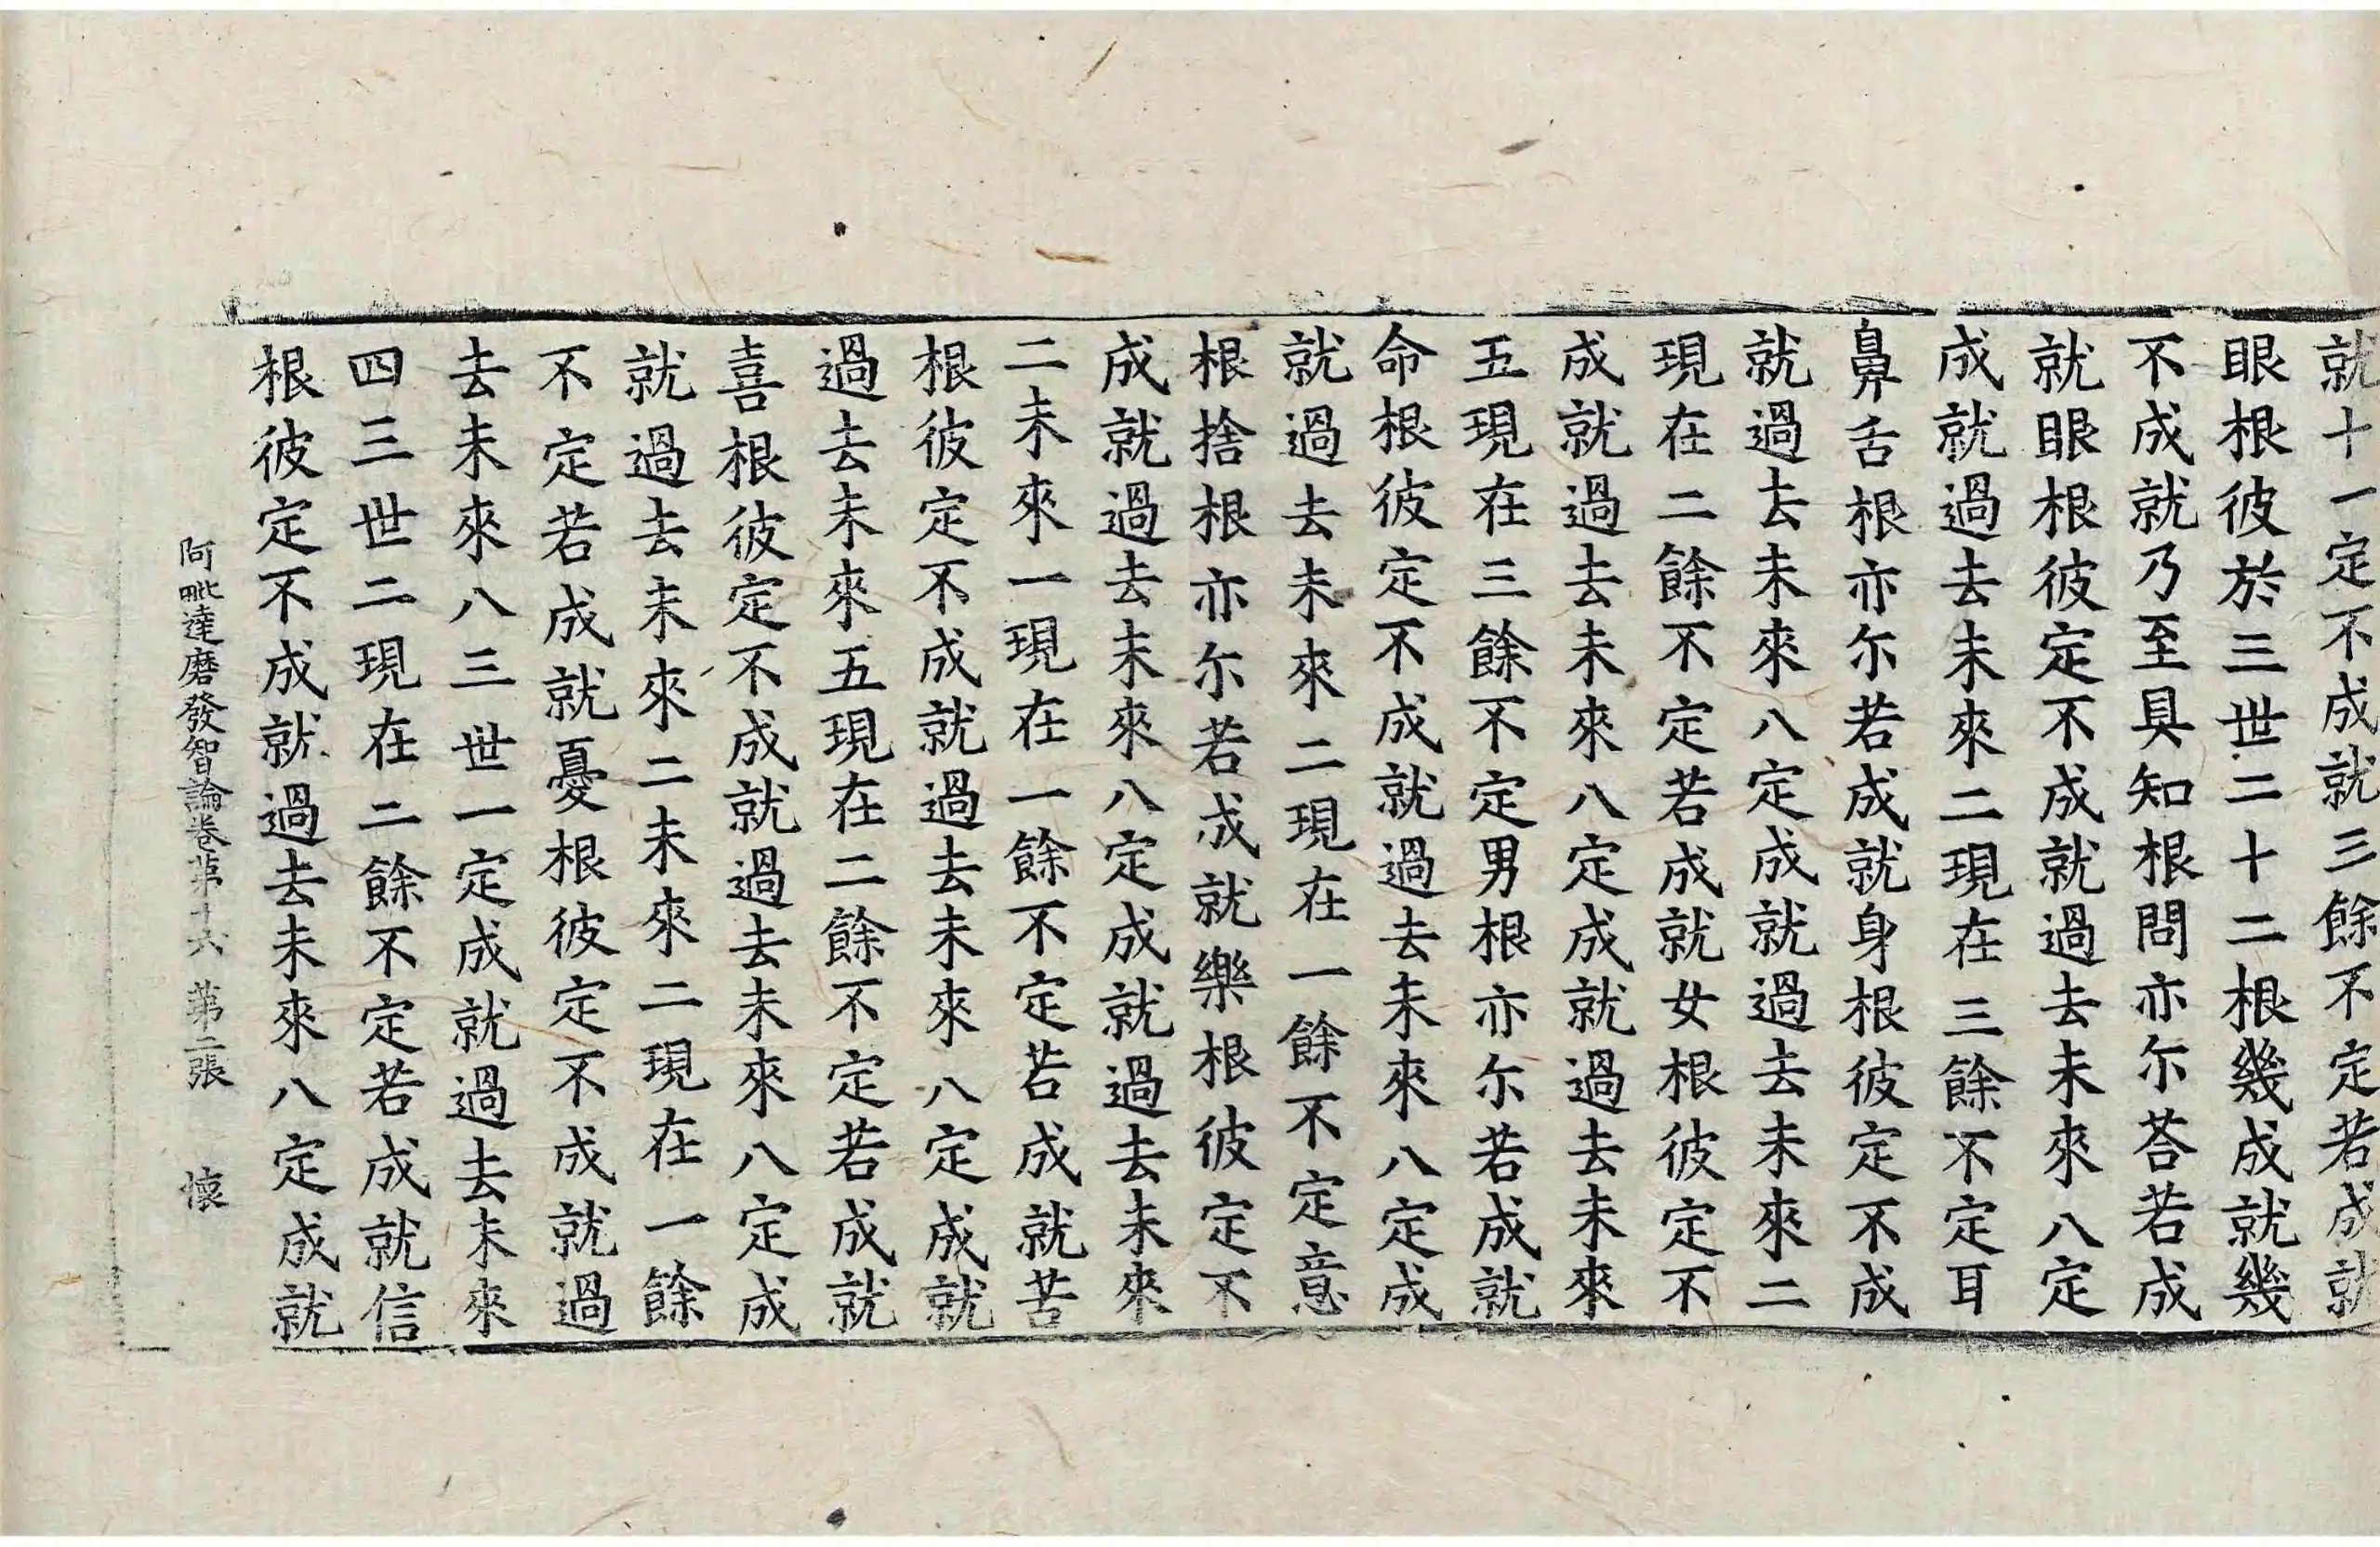 就十一定不成就三餘不定若成就
眼根彼於三世二十二根幾成就幾
不成就乃至具知根問亦尓荅若成
就眼根彼定不成就過去未來八定
成就過去未來二現在三餘不定耳
鼻舌根亦尓若成就身根彼定不成
就過去未來八定成就過去未來二
現在二餘不定若成就女根彼定不
成就過去未來八定成就過去未來
五現在三餘不定男根亦尓若成就
命根彼定不成就過去未來八定成
就過去未來二現在一餘不定意
根捨根亦尓若成就樂根彼定不
成就過去未來八定成就過去未來
二未來一現在一餘不定若成就苦
根彼定不成就過去未來八定成就
過去未來五現在二餘不定若成就
喜根彼定不成就過去未來八定成
就過去未來二未來二現在一餘
不定若成就憂根彼定不成就過
去未來八三世一定成就過去未來
四三世二現在二餘不定若成就信
根彼定不成就過去未來八定成就
阿毗達磨發智論卷苐十六 苐二張 懷